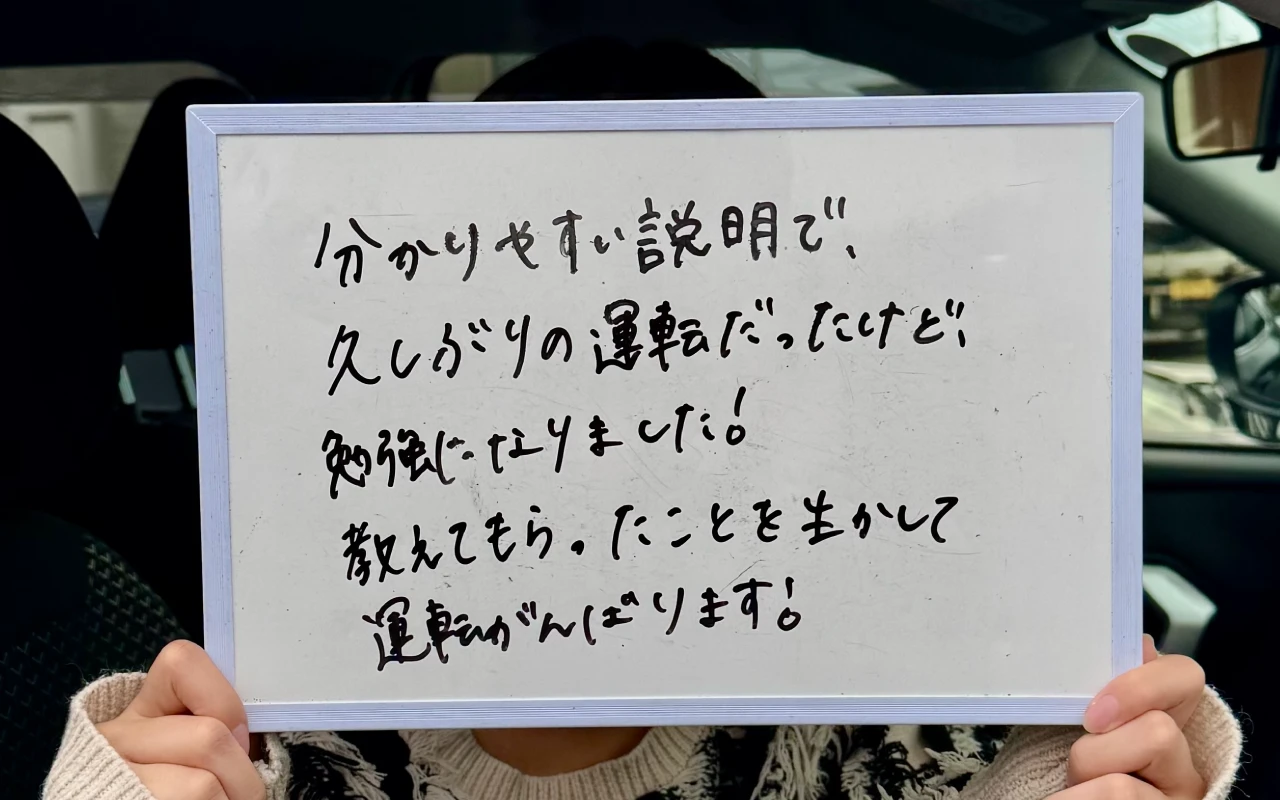 分かりやすい説明で、
久しぶりの運転だったけど、
勉強になりました!
教えてもらったことを生かして
運転がんばります!